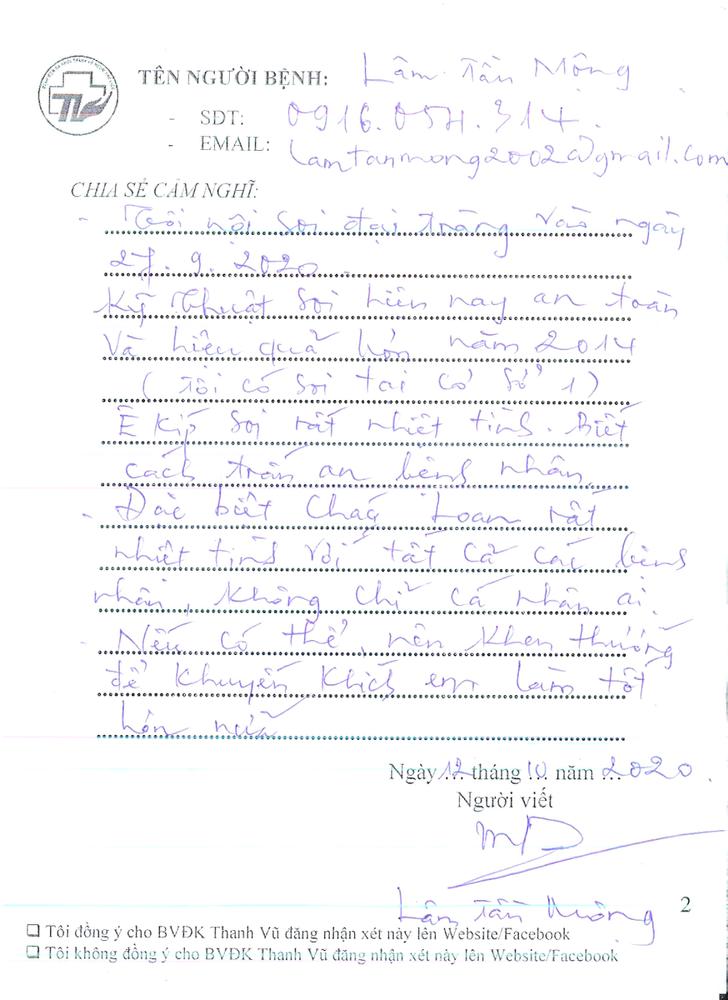 TÊN NGƯỜI BỆNH: Lâm Tấn Mộng
- SĐT: 0916.054.314.
- EMAIL: lamtanmong2002@gmail.com
CHIA SẺ CẢM NGHĨ:
- Tôi nội soi đại tràng vào ngày
27.9.2020.
Kỹ thuật soi hiện nay an toàn
và hiệu quả hơn năm 2014
(Tôi có soi tại cơ sở 1)
Ê kíp soi rất nhiệt tình. Biết
cách trấn an bệnh nhân.
- Đặc biệt cháu Loan rất
nhiệt tình với tất cả các bệnh
nhân, không chỉ cá nhân ai.
- Nếu có thể, nên khen thưởng
để khuyến khích em làm tốt
hơn nữa
Ngày 12 tháng 10 năm 2020.
Người viết
Lâm Tấn Mộng
2
☐ Tôi đồng ý cho BVĐK Thanh Vũ đăng nhận xét này lên Website/Facebook
☐ Tôi không đồng ý cho BVĐK Thanh Vũ đăng nhận xét này lên Website/Facebook